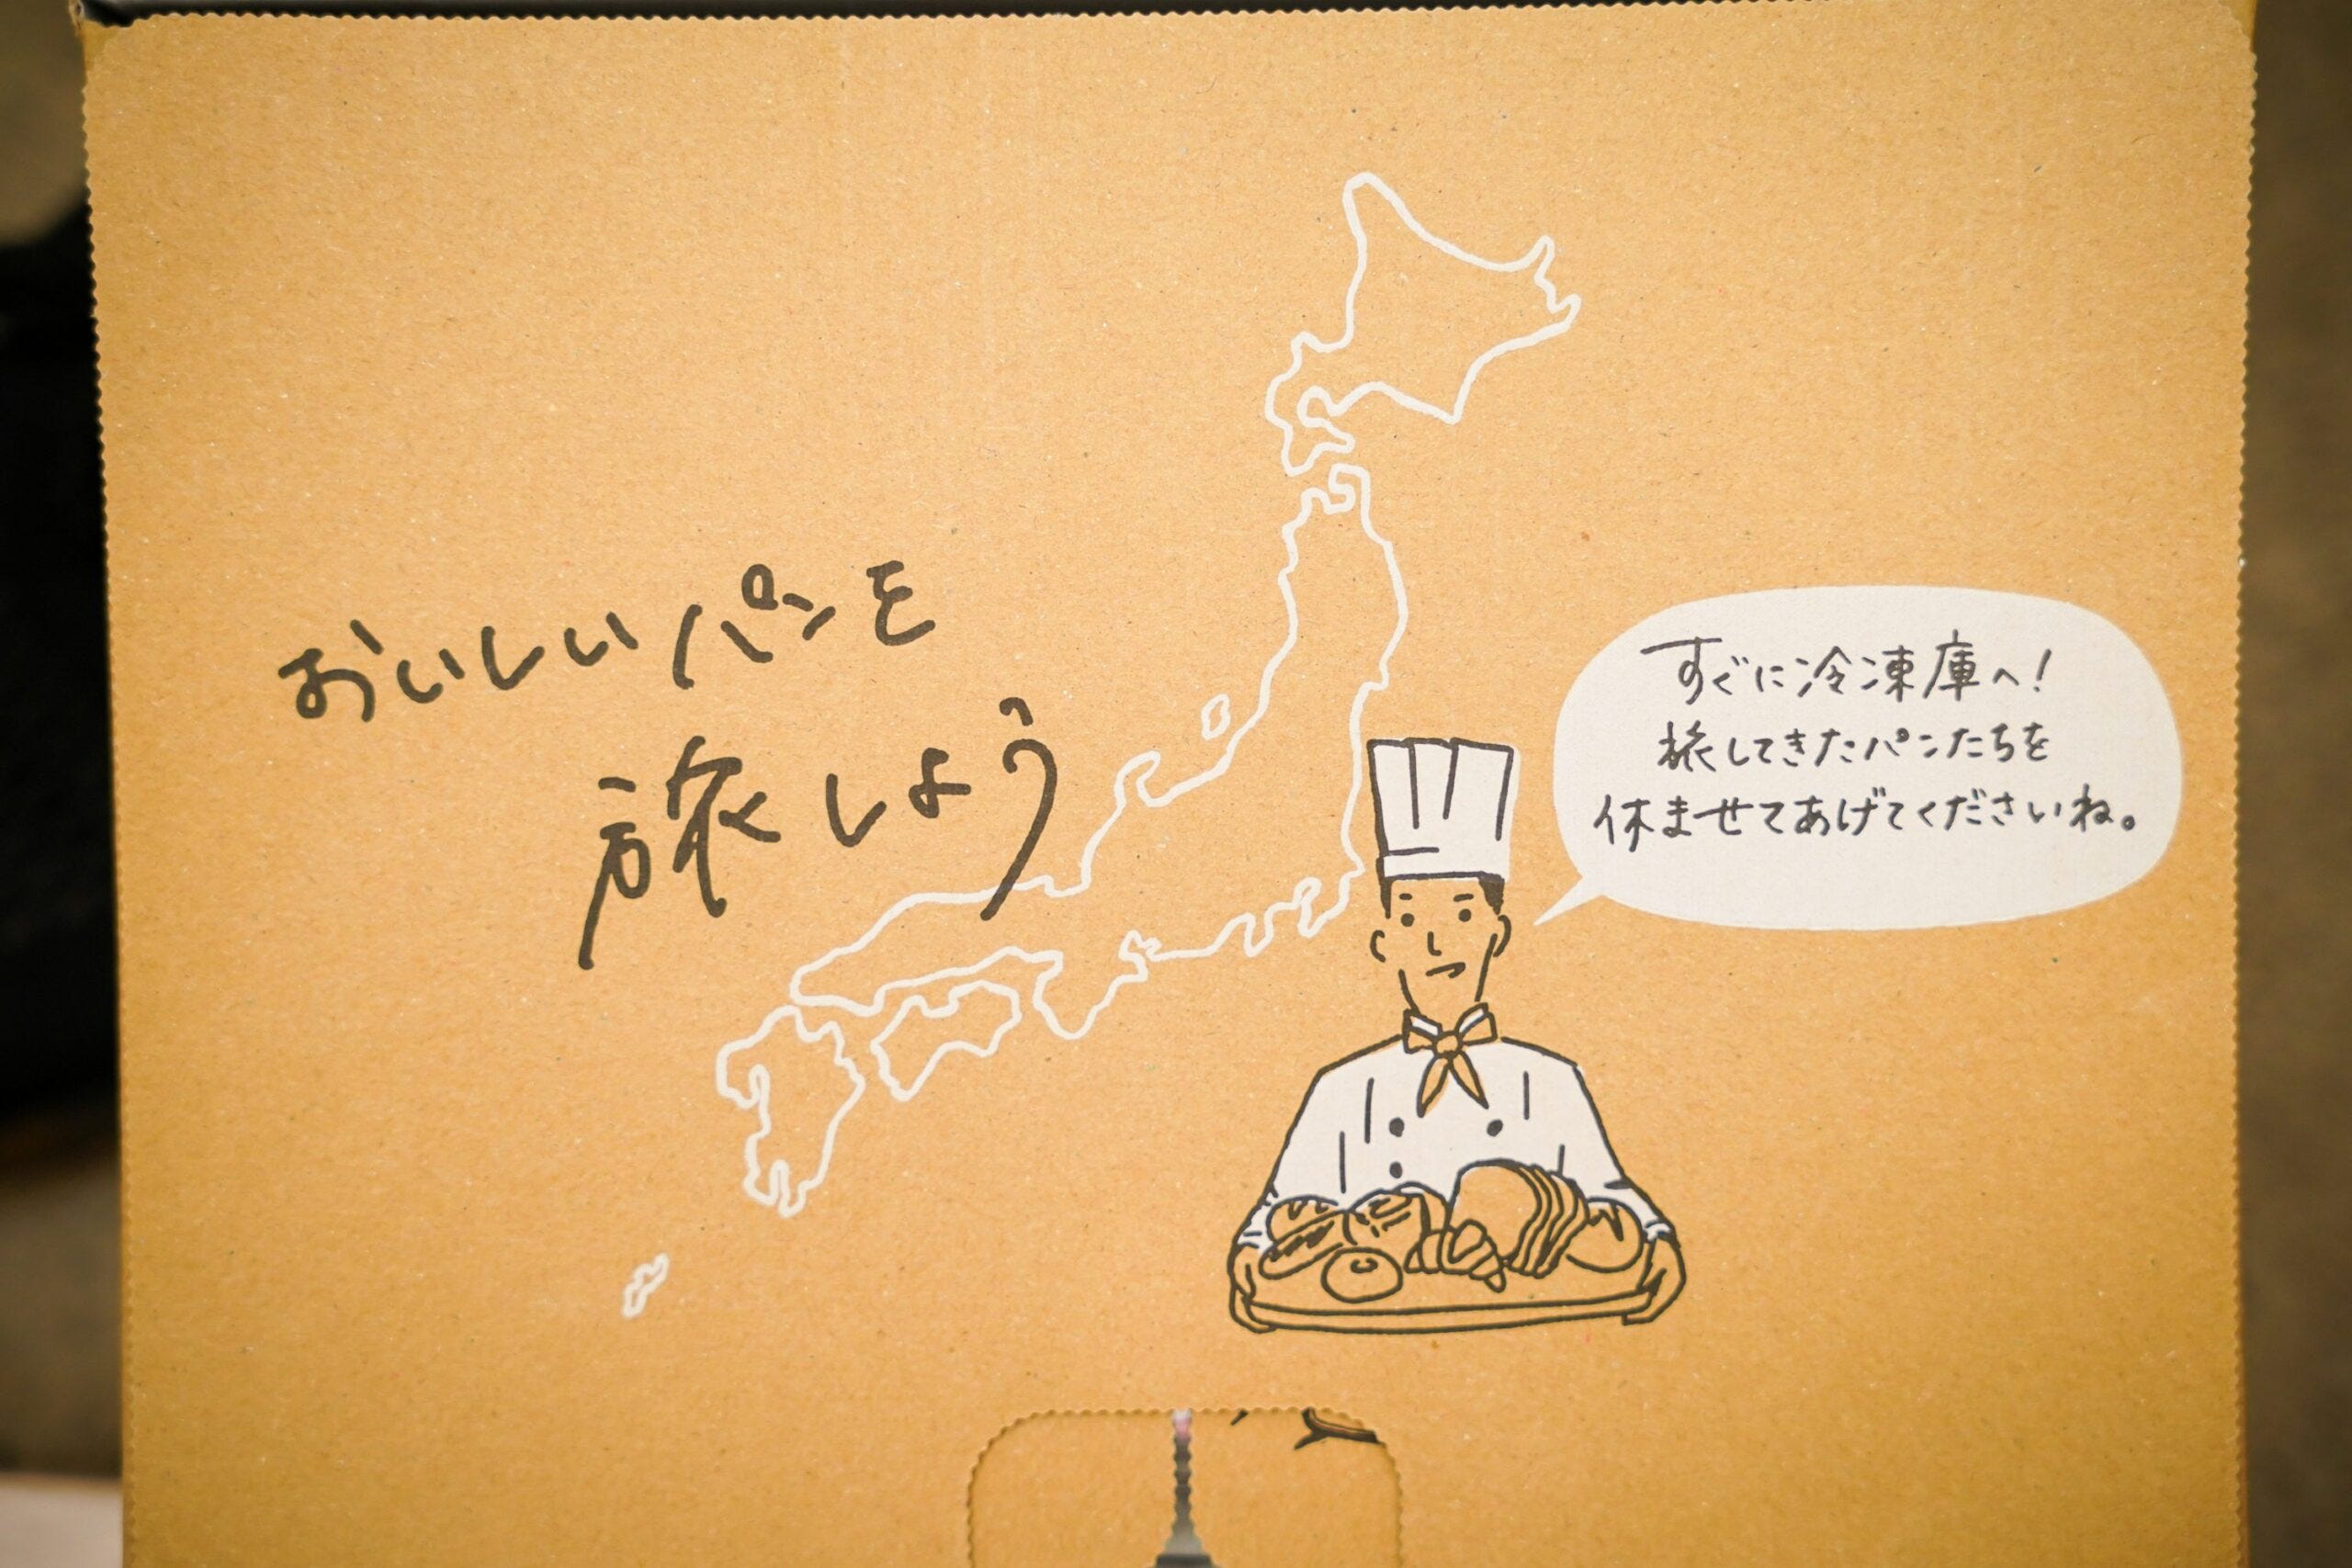 おいしいパンを
旅しよう
すぐに冷凍庫へ!
旅してきたパンたちを
休ませてあげてくださいね。